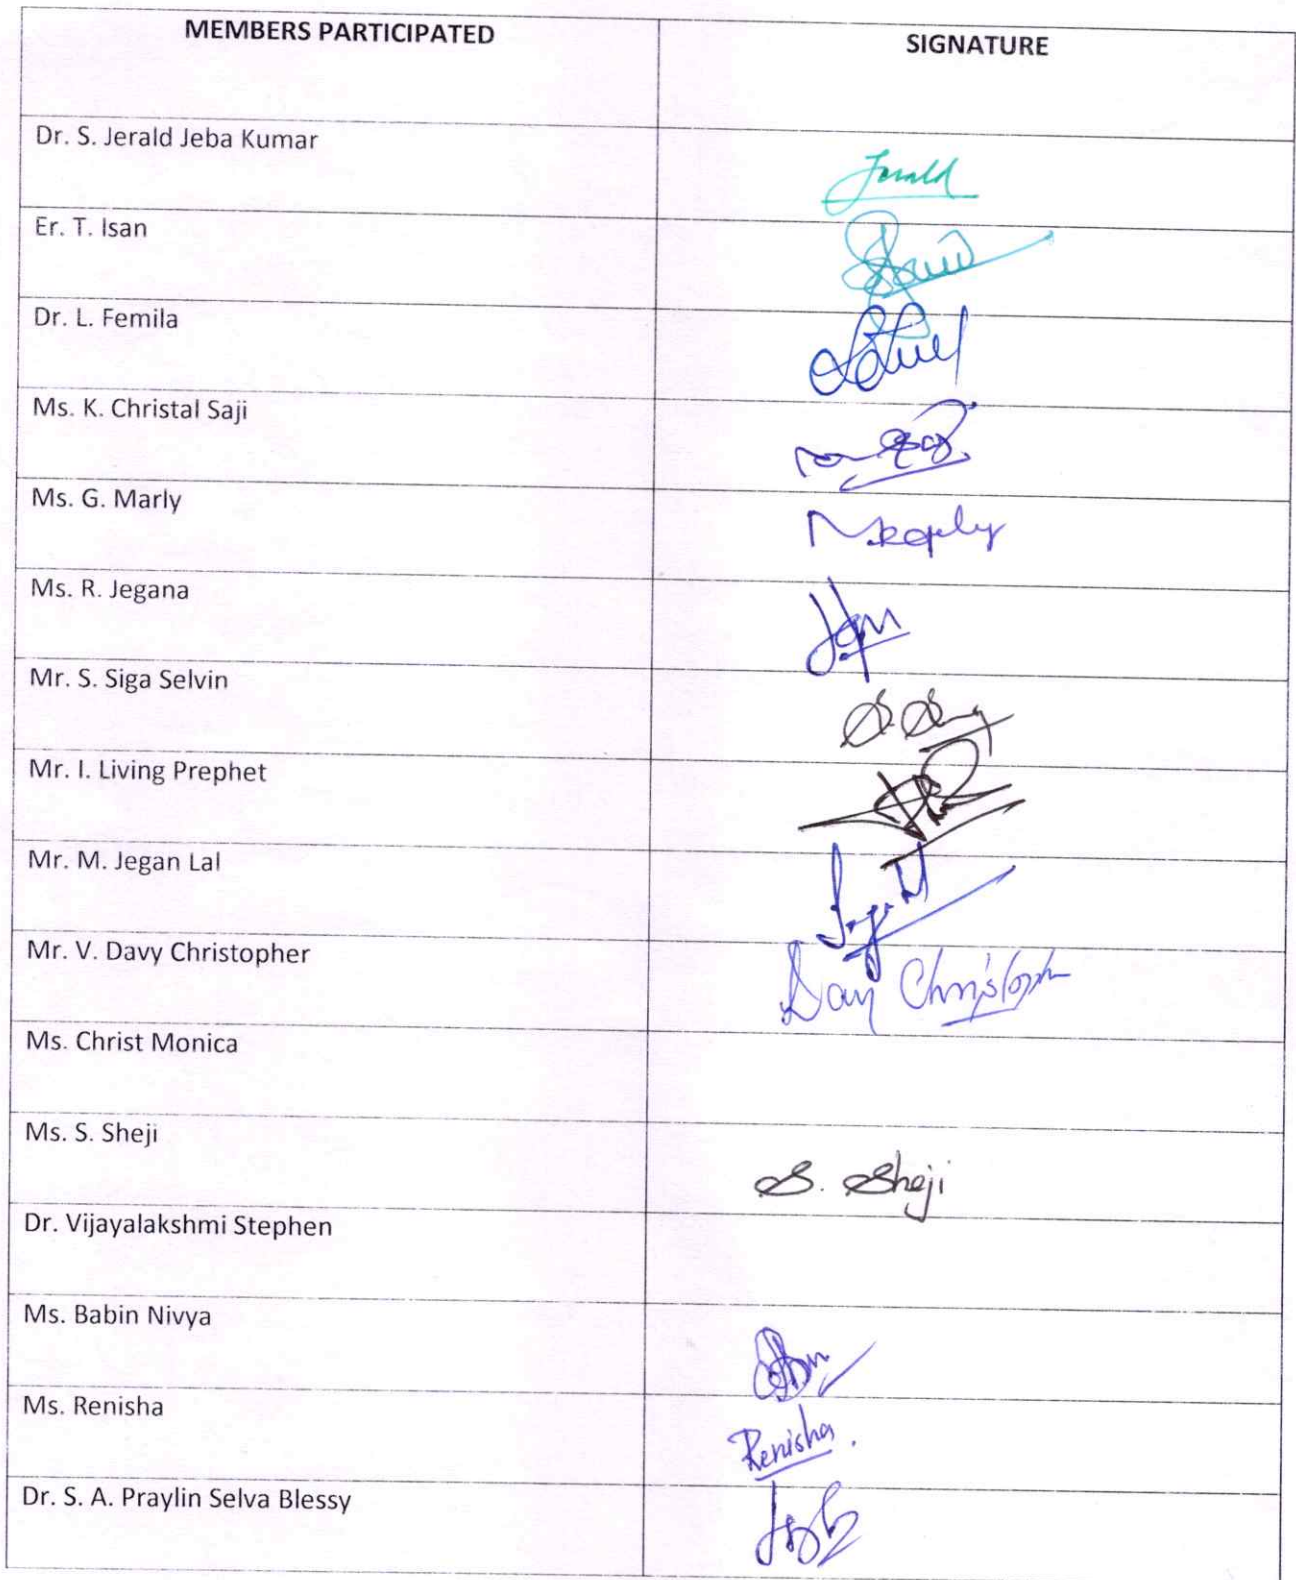 MEMBERS PARTICIPATED SIGNATURE
Dr. S. Jerald Jeba Kumar Jerald
Er. T. Isan
Dr. L. Femila
Ms. K. Christal Saji
Ms. G. Marly
Ms. R. Jegana
Mr. S. Siga Selvin
Mr. I. Living Prephet
Mr. M. Jegan Lal
Mr. V. Davy Christopher
Ms. Christ Monica
Ms. S. Sheji S. Sheji
Dr. Vijayalakshmi Stephen
Ms. Babin Nivya
Ms. Renisha Renisha.
Dr. S. A. Praylin Selva Blessy